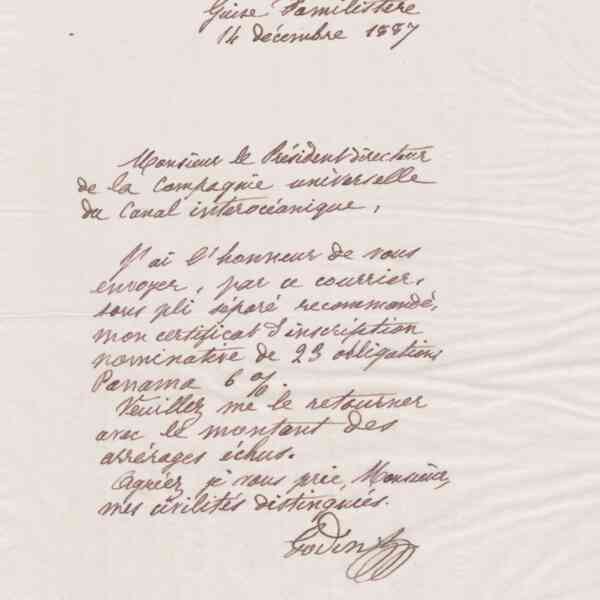 Guise Familistère
14 décembre 1887
Monsieur le Président directeur
de la Compagnie universelle
du Canal interocéanique,
J'ai l'honneur de vous
envoyer, par ce courrier,
sous pli séparé recommandé,
mon certificat d'inscription
nominative de 23 obligations
Panama 6 %.
Veuillez me le retourner
avec le montant des
arrérages échus.
Agréez, je vous prie, Monsieur,
mes civilités distinguées.
Godin